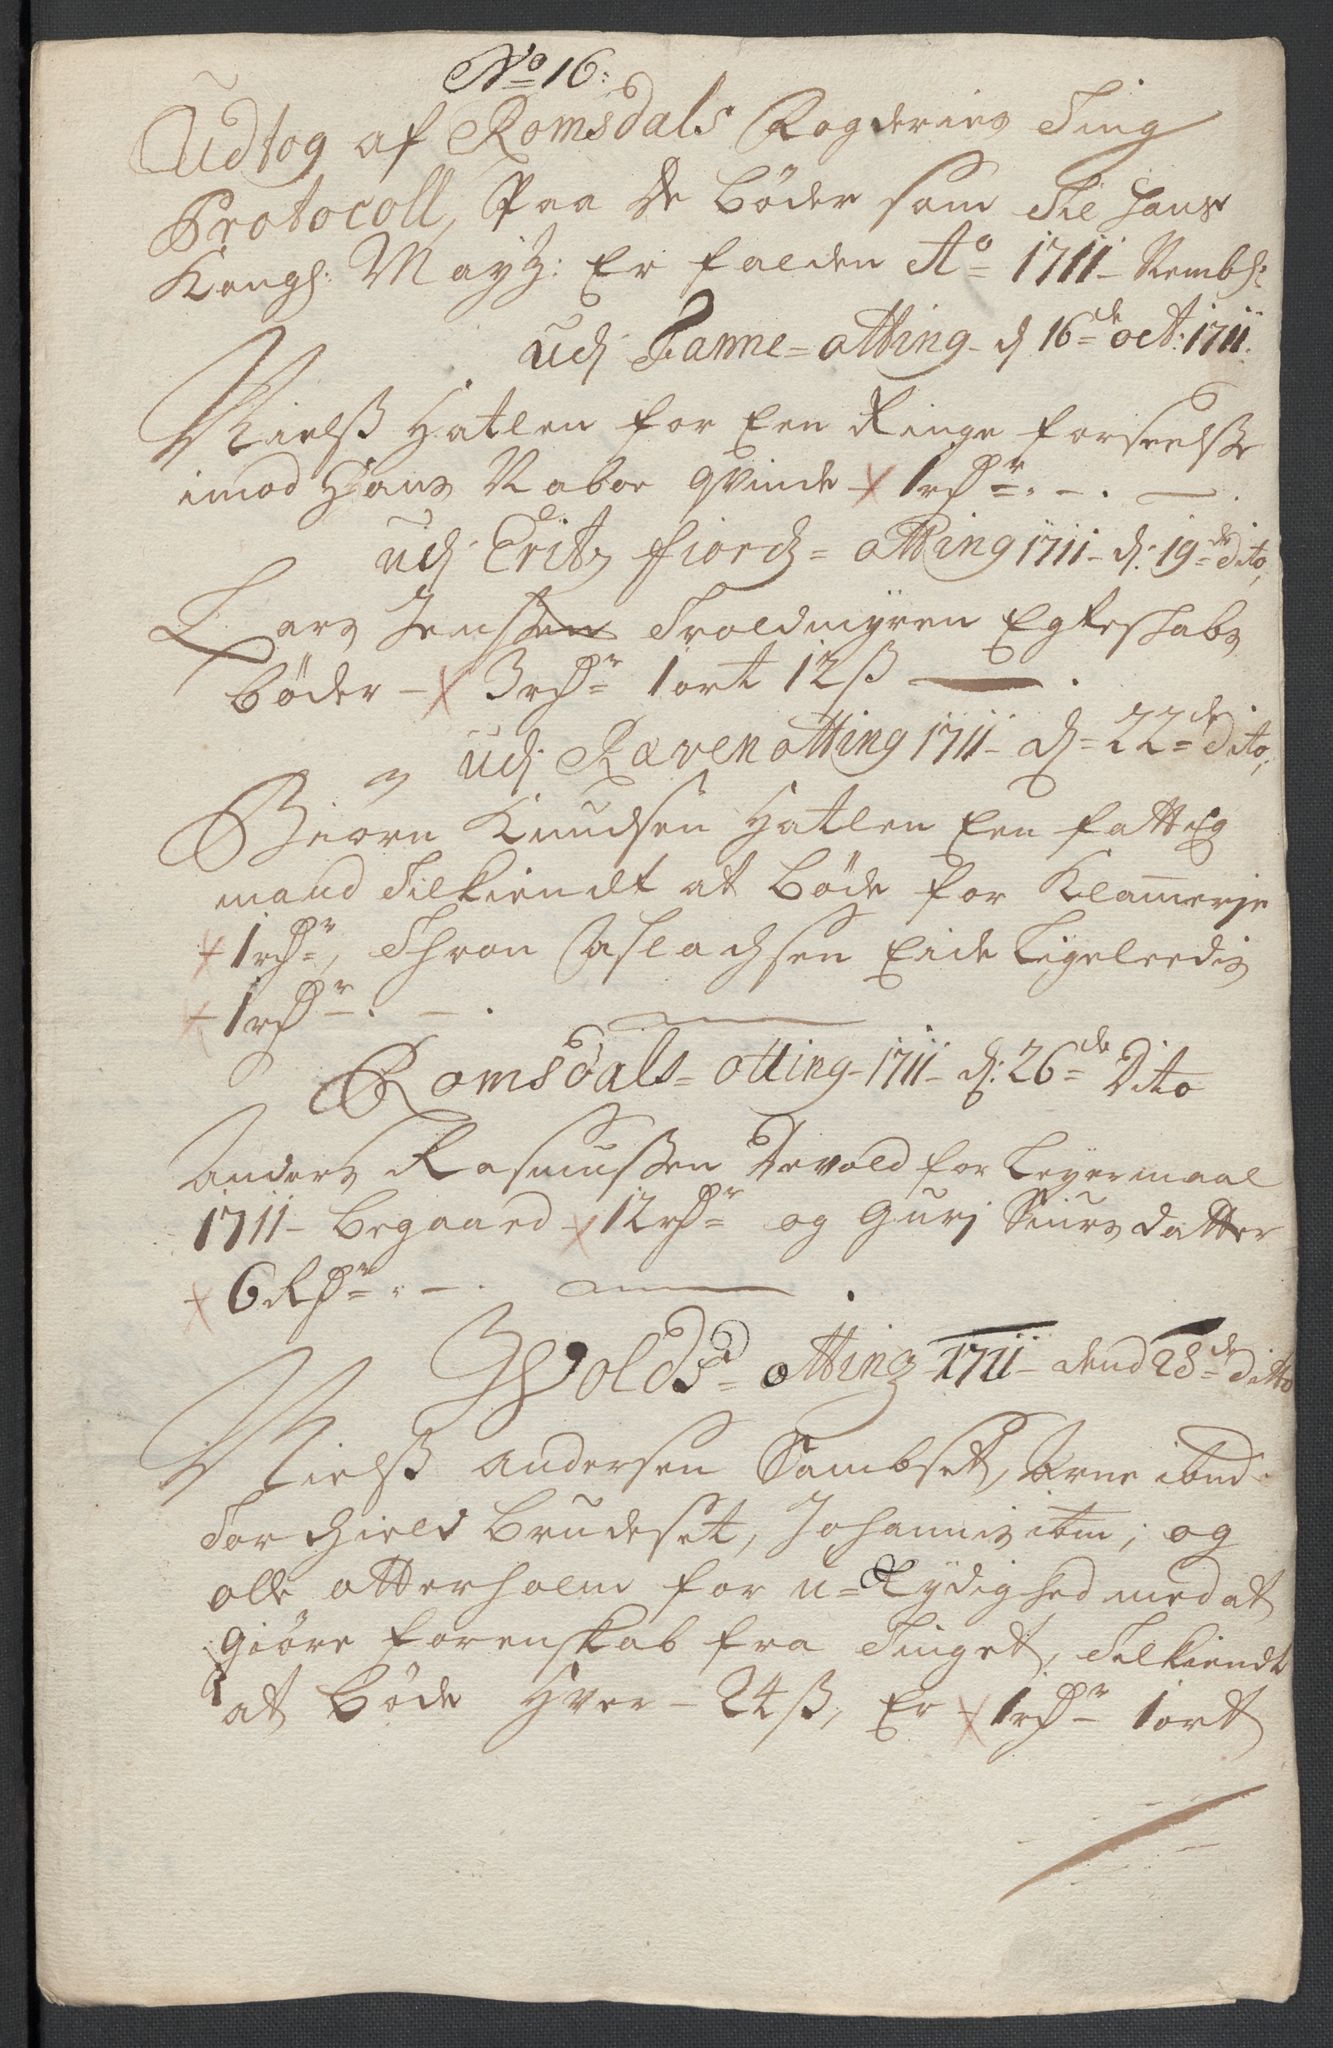 No 16:
Udtog af Romsdals Fogderies Ting
Protocoll, Paa De bøder som Til Hans
Kongl: Mayts: Er falden Ao 1711 Nembl:
udj Tanne-otting d 16de oct: 1711.
Nielß Hatlen for Een Ringe forseelsse
imod Hans Naboe Qvinde 1 rdr
udj Eritzfiords-otting 1711 d: 19de Dito,
Lars Jenssen Troldmyren Egteskabs
bøder 3 rdr 1 ort 12 ß
udj Ræven otting 1711 d 22de Dito,
Biørn Knudsen Hatlen Een fattig
mand Tilkiendt at bøde for Klammerje
1 rdr, Thron Aslachsen Eide Ligeleedis
1 rdr
Romsdals-otting 1711 d: 26de Dito
Anders Rasmussen Devold for Leyermaal
1711 begaaed 12 rdr og Gurj Siursdatter
6 Rdr
Volds otting 1711 dend 28de Ditto
Nielß Andersen Sambset, Arne ibnd
Torchield Brudeset, Johannis ibm, og
olle otterholm for u-Lydighed med at
giøre forenskab fra Tinget, Tilkiendt
at bøde Hver 24 ß, Er 1 rdr 1 ort